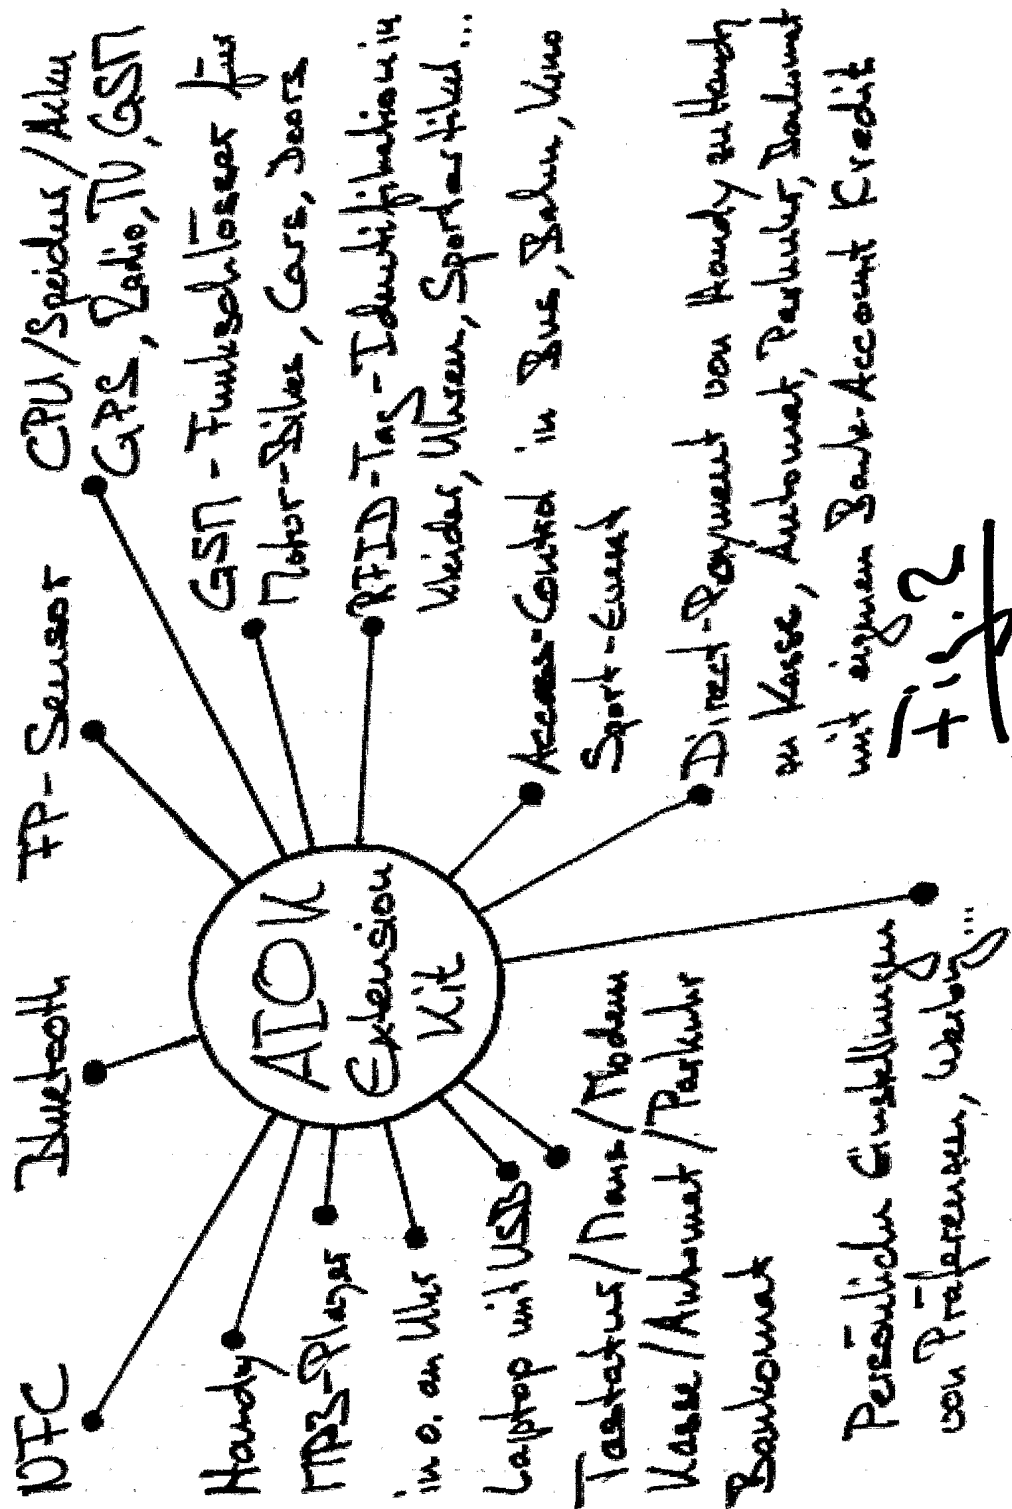 NFC
Bluetooth
FP-Sensor
CPU/Speicher/Akku
GPS, Radio, TV, GSM
GSM-Funkschlösser für
Motor-Bikes, Cars, Doors
RFID-Tag-Identifikation in
Kleider, Uhren, Sportartikel...
Access-Control in Bus, Bahn, Kino
Sport-Event
Direct-Payment von Handy zu Handy
an Kasse, Automat, Parkuhr, Bankomat
mit eigenen Bank-Account Kredit
AIOK
Extension
Kit
Handy
MP3-Player
in o. an Uhr
Laptop mit USB
Tastatur/Maus/Modem
Kasse/Automat/Parkuhr
Bankomat
Persönliche Einstellungen
von Präferenzen, Werbg...
Fig. 2